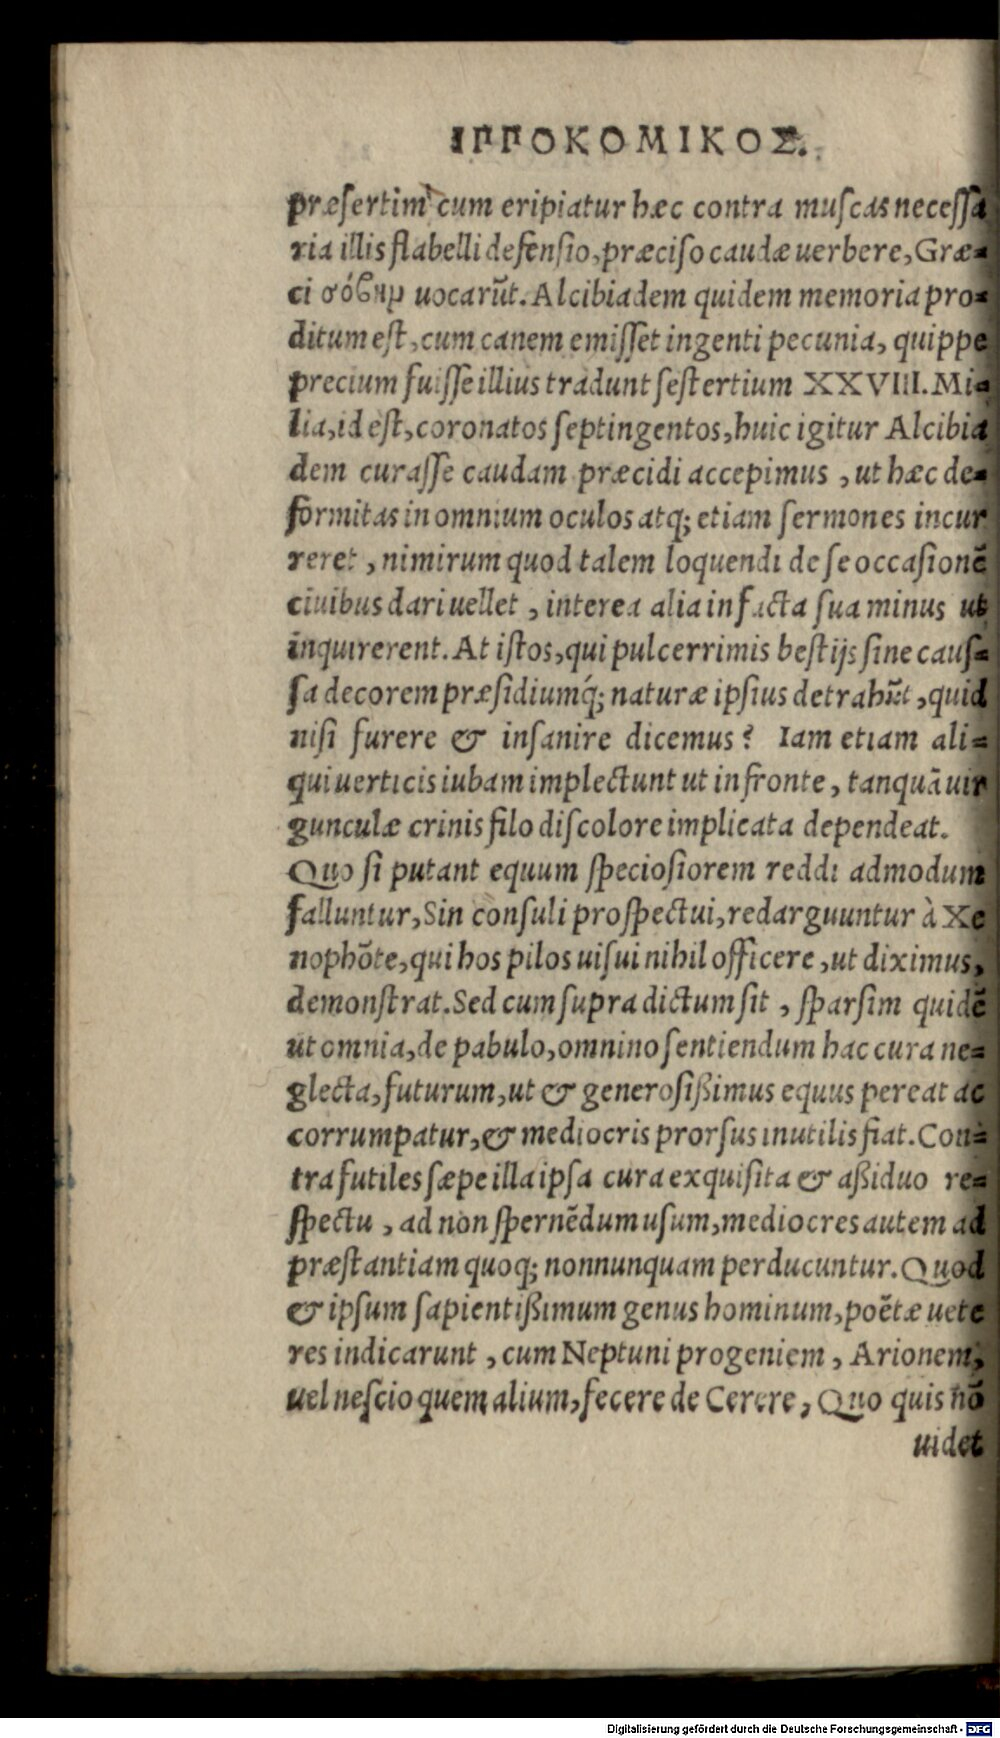 ΙΠΠΟΚΟΜΙΚΟΣ.
præsertim cum eripiatur hæc contra muscas necessa
ria illis flabelli defensio, præciso caudæ uerbere, Græ-
ci σόβην uocarūt. Alcibiadem quidem memoria pro-
ditum est, cum canem emisset ingenti pecunia, quippe
precium fuisse illius tradunt sestertium XXVIII. Mi-
lia, id est, coronatos septingentos, huic igitur Alcibia
dem curasse caudam præcidi accepimus, ut hæc de-
formitas in omnium oculos atq; etiam sermones incur
reret, nimirum quod talem loquendi de se occasionē
ciuibus dari uellet, interea alia in facta sua minus ut
inquirerent. At istos, qui pulcerrimis bestijs sine caus-
sa decorem præsidiumq́; naturæ ipsius detrahūt, quid
nisi furere & insanire dicemus? Iam etiam ali-
qui uerticis iubam implectunt ut in fronte, tanquā uir
gunculæ crinis filo discolore implicata dependeat.
Quo si putant equum speciosiorem reddi admodum
falluntur, Sin consuli prospectui, redarguuntur à Xe
nophōte, qui hos pilos uisui nihil officere, ut diximus,
demonstrat. Sed cum supra dictum sit, sparsim quidē
ut omnia, de pabulo, omnino sentiendum hac cura ne-
glecta, futurum, ut & generosißimus equus pereat ac
corrumpatur, & mediocris prorsus inutilis fiat. Con-
tra futiles sæpe illa ipsa cura exquisita & aßiduo re-
spectu, ad non spernēdum usum, mediocres autem ad
præstantiam quoq; nonnunquam perducuntur. Quod
& ipsum sapientißimum genus hominum, poëtæ uete
res indicarunt, cum Neptuni progeniem, Arionem,
uel nescio quem alium, fecere de Cerere, Quo quis nō
uidet
Digitalisierung gefördert durch die Deutsche Forschungsgemeinschaft - DFG